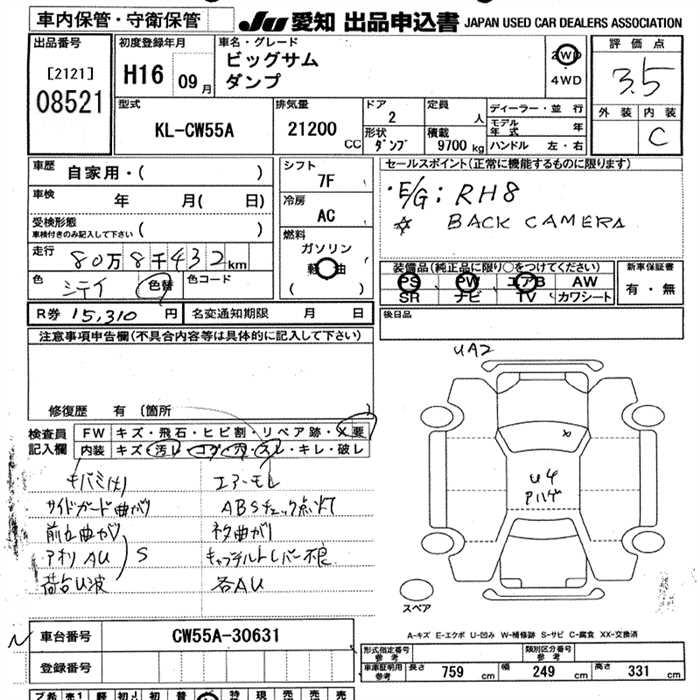 車内保管・守衛保管
JU 愛知 出品申込書 JAPAN USED CAR DEALERS ASSOCIATION
出品番号
[2121]
08521
初度登録年月
H16 09月
車名・グレード
ビッグサム
ダンプ
2WD
4WD
評価点
3.5
外装 内装
C
型式
KL-CW55A
排気量
21200 CC
ドア
2
形状
ダンプ
定員
人
積載
9700 kg
ディーラー・並行
モデル年式 年
ハンドル 左・右
車歴 自家用・( )
車検 年 月( 日)
受検形態
車検付きのみ記入して下さい ( )
走行 80万8千432km
色 シテイ 色替 色コード
シフト
7F
冷房
AC
燃料
ガソリン
軽油
( )
セールスポイント(正常に機能するものに限ります)
・E/G: RH8
☆ BACK CAMERA
装備品(純正品に限り○をつけてください)
PS PW エアB AW
SR ナビ TV カワシート
新車保証書
有・無
R券 15,310 円 名変通知期限 月 日
後日品
注意事項申告欄(不具合内容等は具体的に記入して下さい)
修復歴 有 (箇所
検査員
記入欄
FW キズ・飛石・ヒビ割・リペア跡・X要
内装 キズ・汚レ・コゲ・穴・スレ・キレ・破レ
サイドガード曲がり
前立曲がり
アオリAU S
荷台U波
エアーモレ
ABSチェック点灯
キャブチルトレバー不良
各AU
UA2
X
U4
Pハゲ
スペア
N
車台番号 CW55A-30631
登録番号
A-キズ E-エクボ U-凹み W-補修跡 S-サビ C-腐食 XX-交換済
形式指定番号
参考
類別区分番号
参考
車庫証明用
参考
長さ 759 cm 幅 249 cm 高さ 331 cm